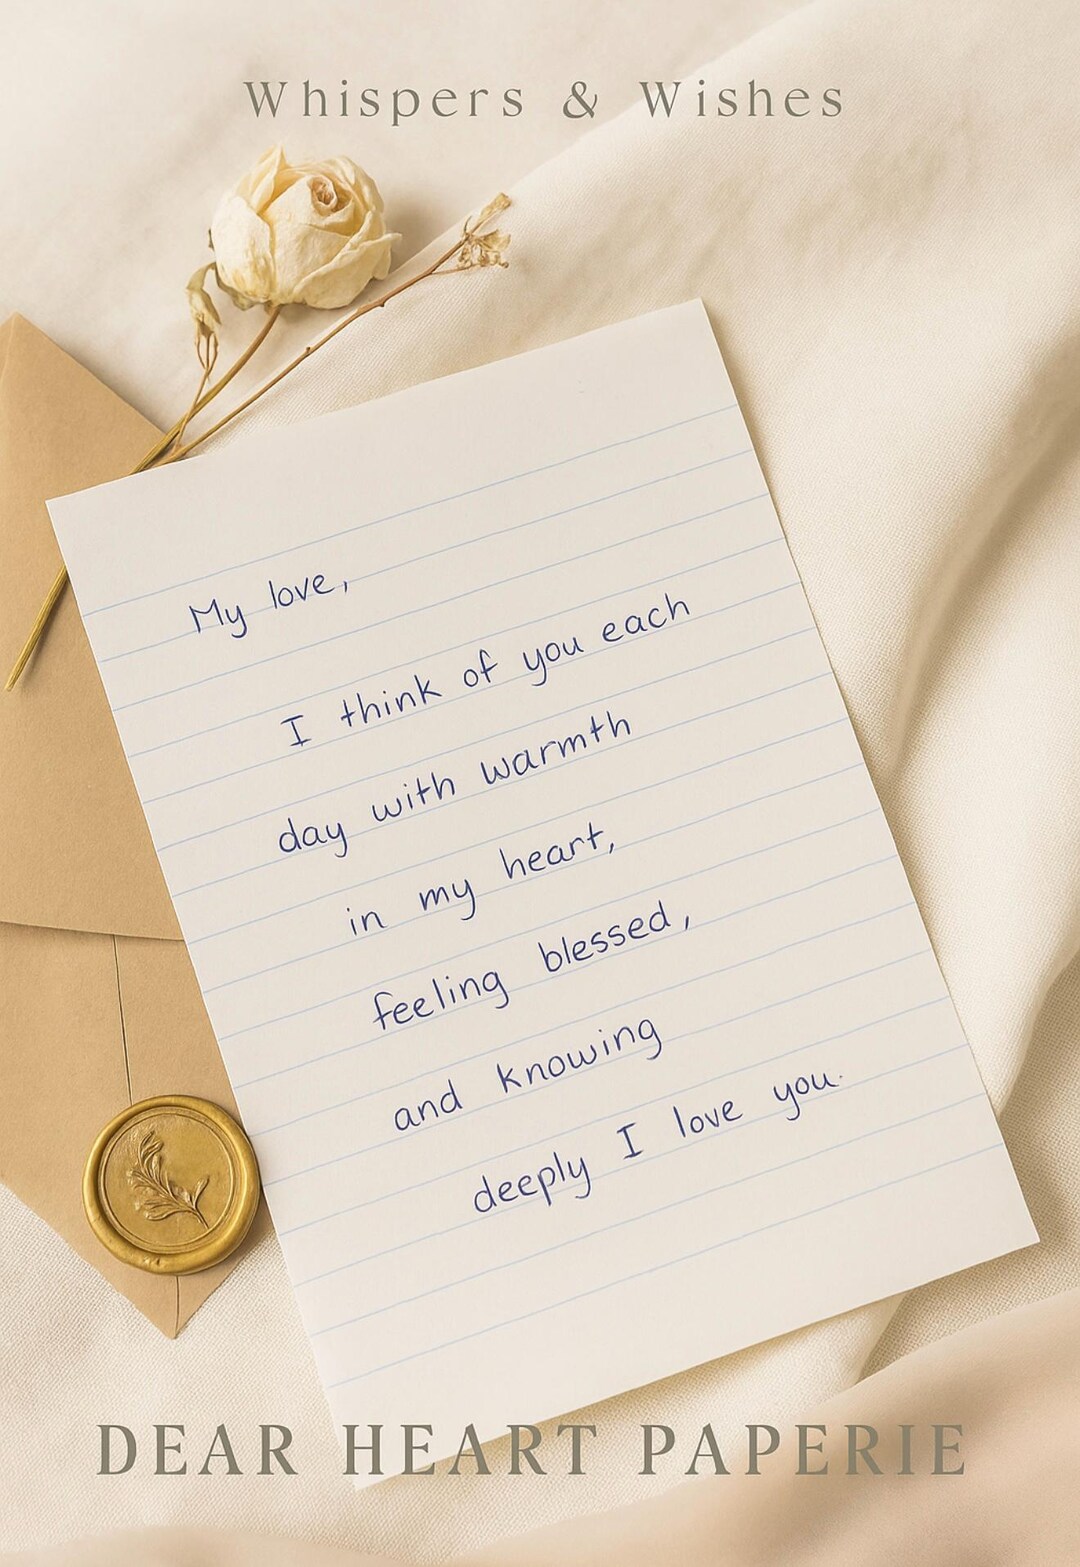 Whispers & Wishes
My love,
I think of you each
day with warmth
in my heart,
feeling blessed,
and knowing
deeply I love you.
DEAR HEART PAPERIE